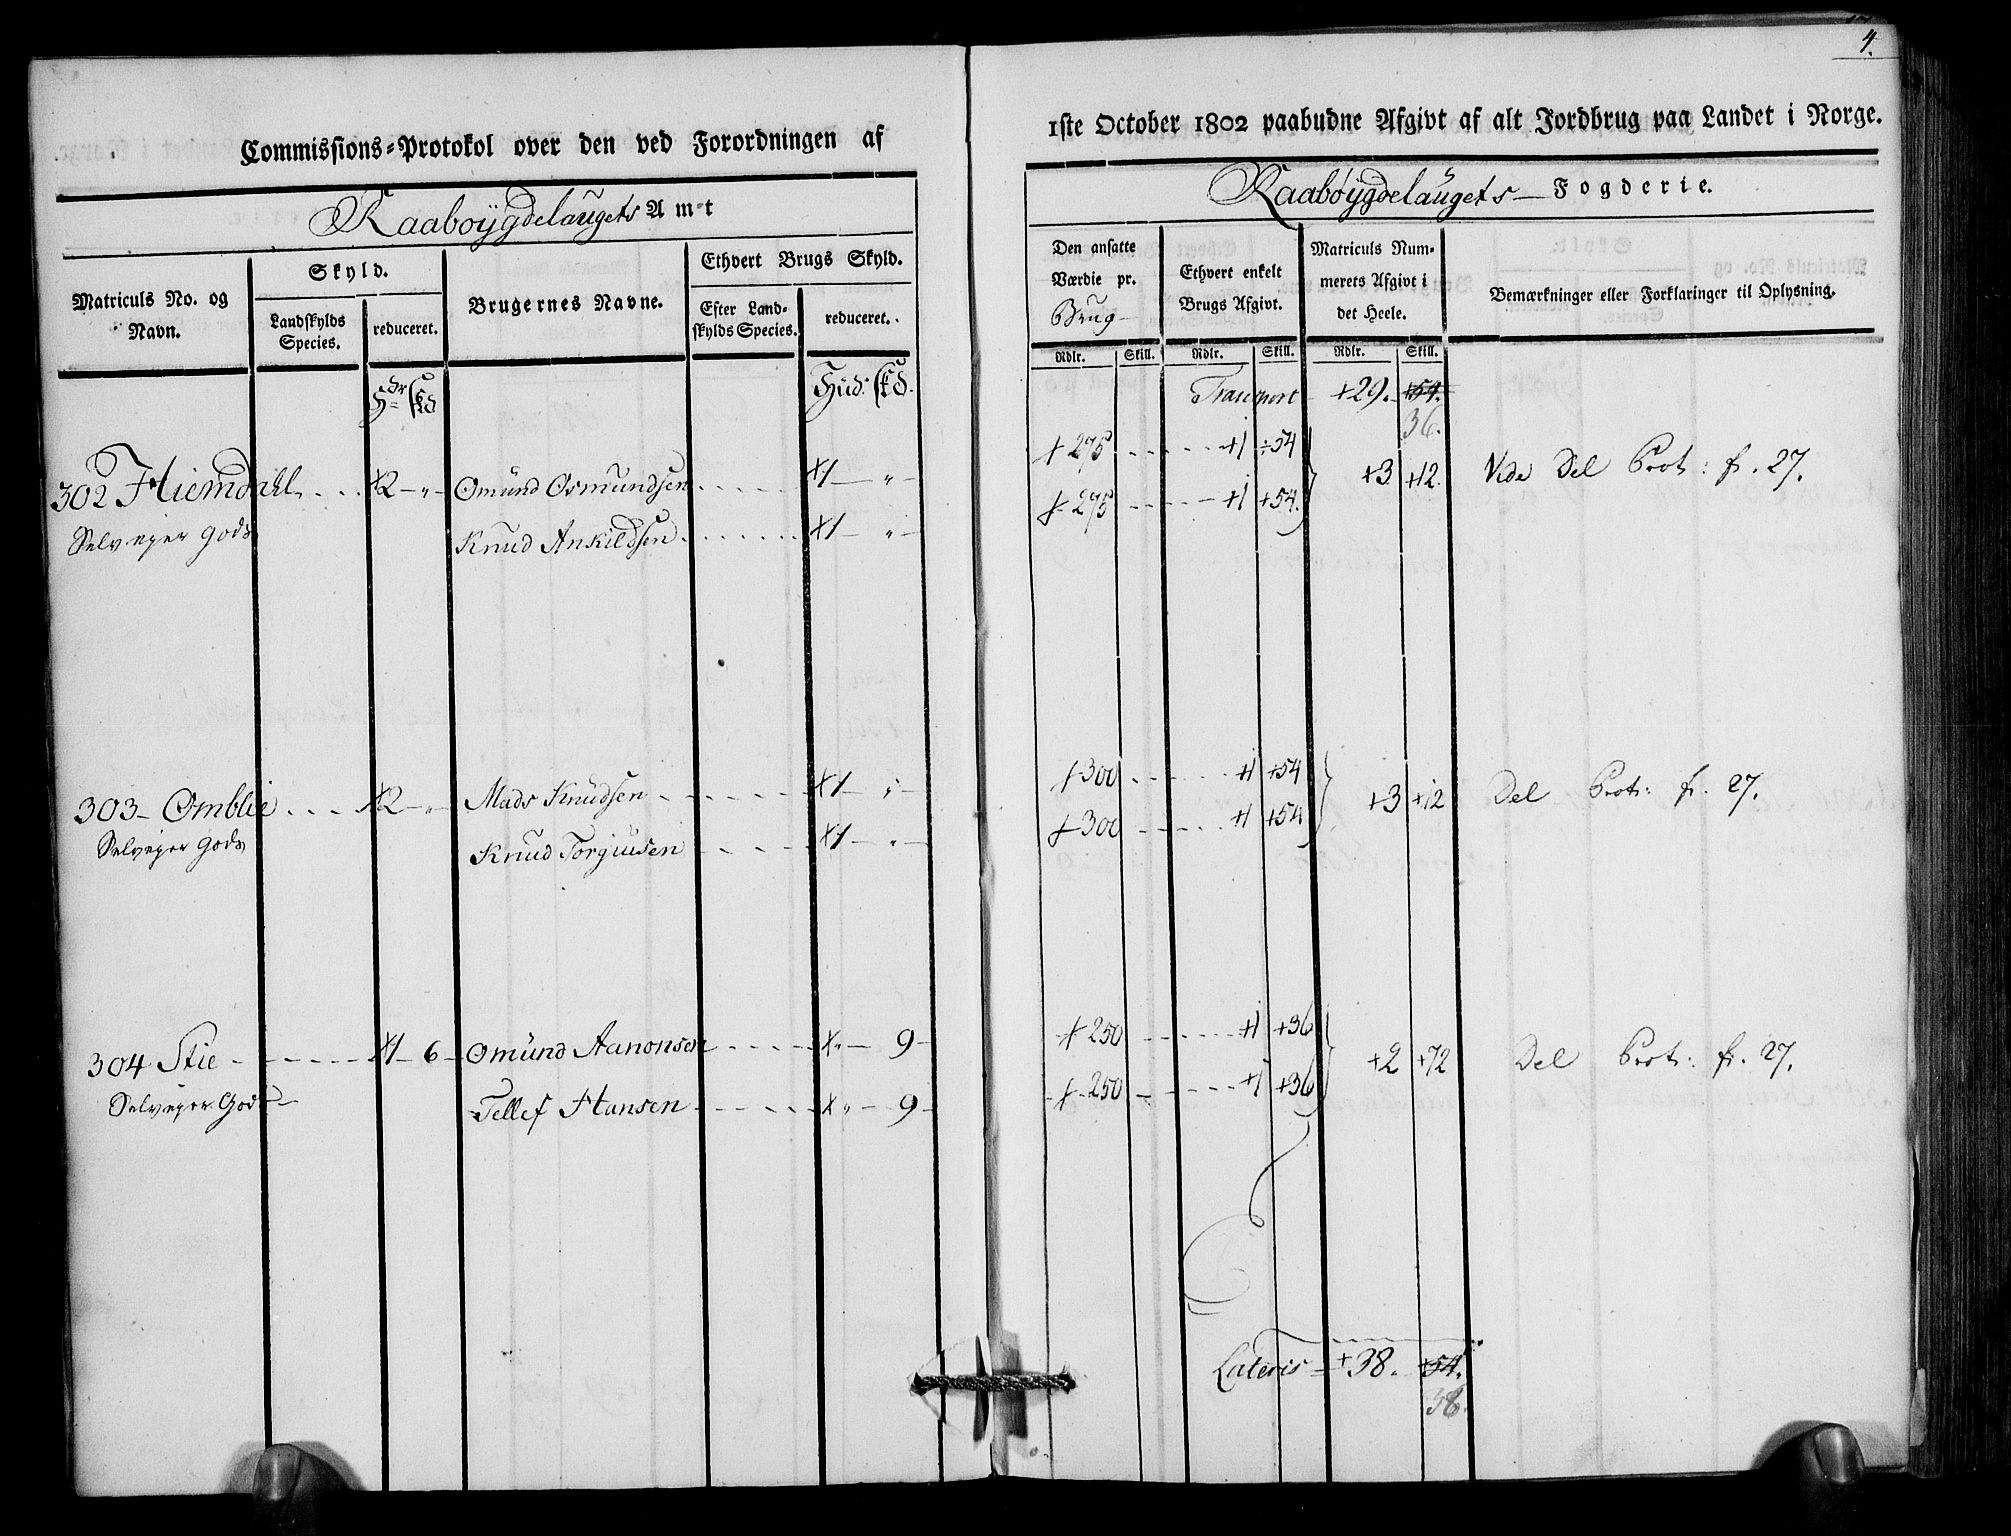 4.
Commissions-Protokol over den ved Forordningen af
Raaboÿgdelaugets Amt
Matriculs No. og Navn.
Skyld.
Landskylds Species.
reduceret.
Brugernes Navne.
Ethvert Brugs Skyld.
Efter Landskylds Species.
reduceret.
Hud:
302 Hiemdahl . . . +2 — „ — Omünd Osmundsen . . . . . +1 — „ —
Selveyer Gods Knud Ankildsen . . . . . . +1 — „ —
303 – Omblie . . . +2 — „ Mads Knudsen - - - - - - +1 — „ —
Selveyer Gods Knud Torgiusen - - - - - +1 — „ —
304 Stie - - - - - - +1 – 6 – Omünd Aanonsen - - - - +„ — 9 –
Selveyer Gods — Tellef Hansen - - - - - +„ — 9 –
1ste October 1802 paabudne Afgivt af alt Jordbrug paa Landet i Norge.
Raabøÿgdelaugets — Fogderie.
Den ansatte Værdie pr. Brug —
Ethvert enkelt Brugs Afgivt.
Matriculs Nummerets Afgivt i det Heele.
Bemærkninger eller Forklaringer til Oplysning.
Rdlr. Skill. Rdlr. Skill. Rdlr. Skill.
Transport +29. +54.
36.
+ 275 . . . . . . +1 +54
+3 +12. Vide Del Prot: fr. 27.
+ 275 . . . . . +1 +54.
+ 300 . . . . . . +1 +54
+3 +12 Del Prot: fr. 27.
+ 300 . . . . . . +1 +54
+ 250 . . . . . . +1 +36
+2 +72 Del Prot: fr. 27.
+ 250 . . . . . +1 +36
Lateris = +38. +54.
38.